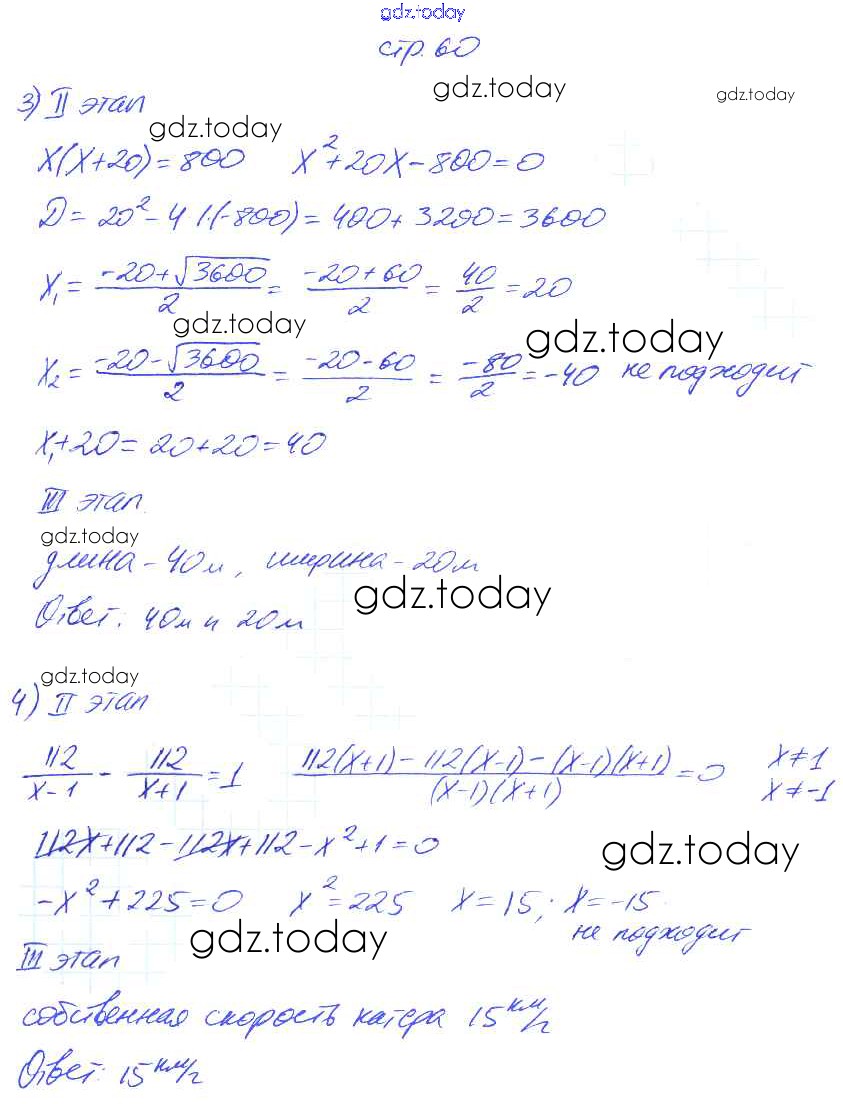 gdz.today
стр. 60
gdz.today gdz.today
3) II этап
gdz.today
x(x+20)=800 x²+20x-800=0
D=20²-4·1·(-800)=400+3200=3600
x₁=(-20+√3600)/2=(-20+60)/2=40/2=20
gdz.today gdz.today
x₂=(-20-√3600)/2=(-20-60)/2=-80/2=-40 не подходит
x₁+20=20+20=40
III этап.
gdz.today
длина-40м, ширина-20м
gdz.today
Ответ: 40м и 20м
gdz.today
4) II этап
112/(x-1) - 112/(x+1)=1 (112(x+1)-112(x-1)-(x-1)(x+1))/((x-1)(x+1))=0 x≠1 x≠-1
112x+112-112x+112-x²+1=0
gdz.today
-x²+225=0 x²=225 x=15; x=-15
не подходит
gdz.today
III этап
собственная скорость катера 15 км/ч
Ответ: 15 км/ч